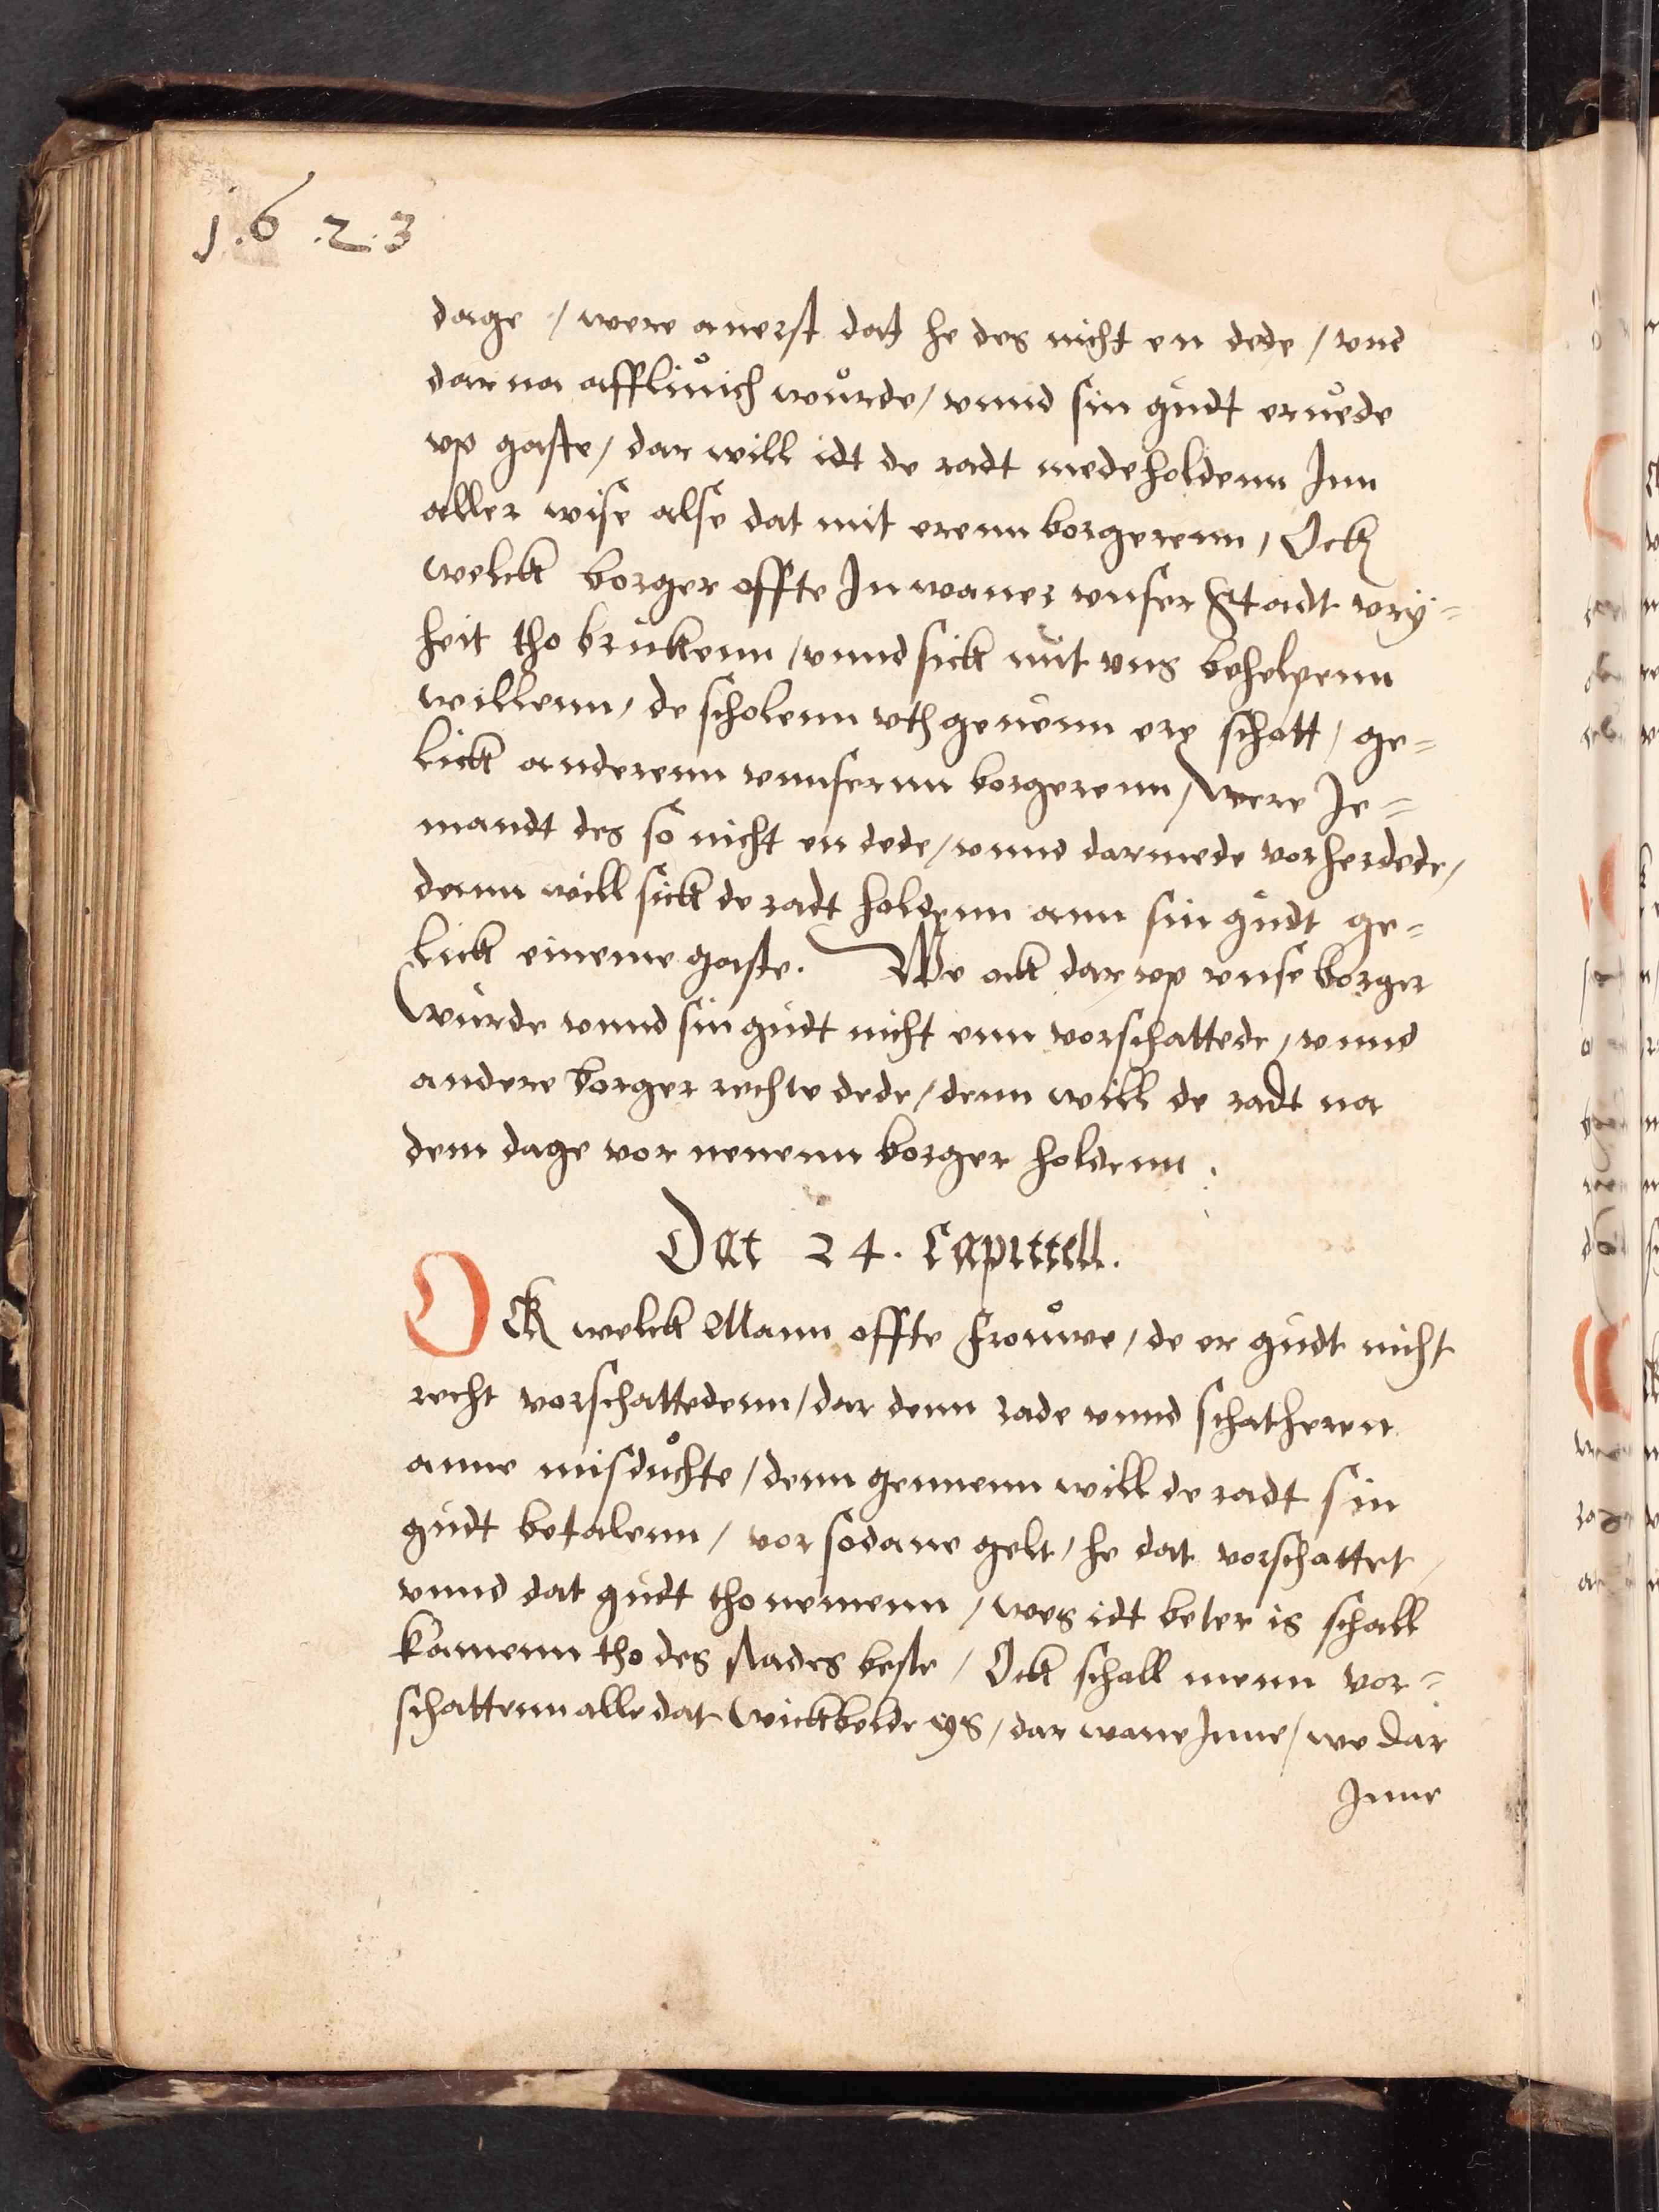 1.6.2.3
dage / were auerst dat he des nicht en dede / vnd
dar na affliuich wurde / vnnd sin gudt eruede
vp gaste / dar will idt de radt medeholdenn Inn
aller wise alse dat mit erenn borgerenn / Ock
welck borger offte Inwaner vnser Stadt vrÿ=
heit tho brukenn / vnnd sick mit vns behelpenn
willenn / de scholenn vth geuenn ere schott / ge=
lick anderenn vnnsernn borgerenn / Were Je=
mandt des so nicht en dede / vnnd darmede vorherdede /
denn will sick de radt holdenn ann sin gudt ge=
lick eineme gaste. We ock dar vp vnse borger
wurde vnnd sin gudt nicht enn vorschattede / vnnd
andere borger rechte dede / denn will de radt na
dem dage vor nenenn borger holdenn.
Dat 24. Capittell.
OCk welck Mann offte frouwe / de er gudt nicht
recht vorschattedenn / dar denn rade vnnd schatheren
anne misduchte / denn gennenn will de radt sin
gudt betalenn / vor sodane gelt / he dat vorschattet /
vnnd dat gudt tho nemenn / wes idt beter is schall
kamenn tho des stades beste / Ock schall menn vor=
schattenn alle dat wickbelde ys / dar wane Inne / we dar
Inne